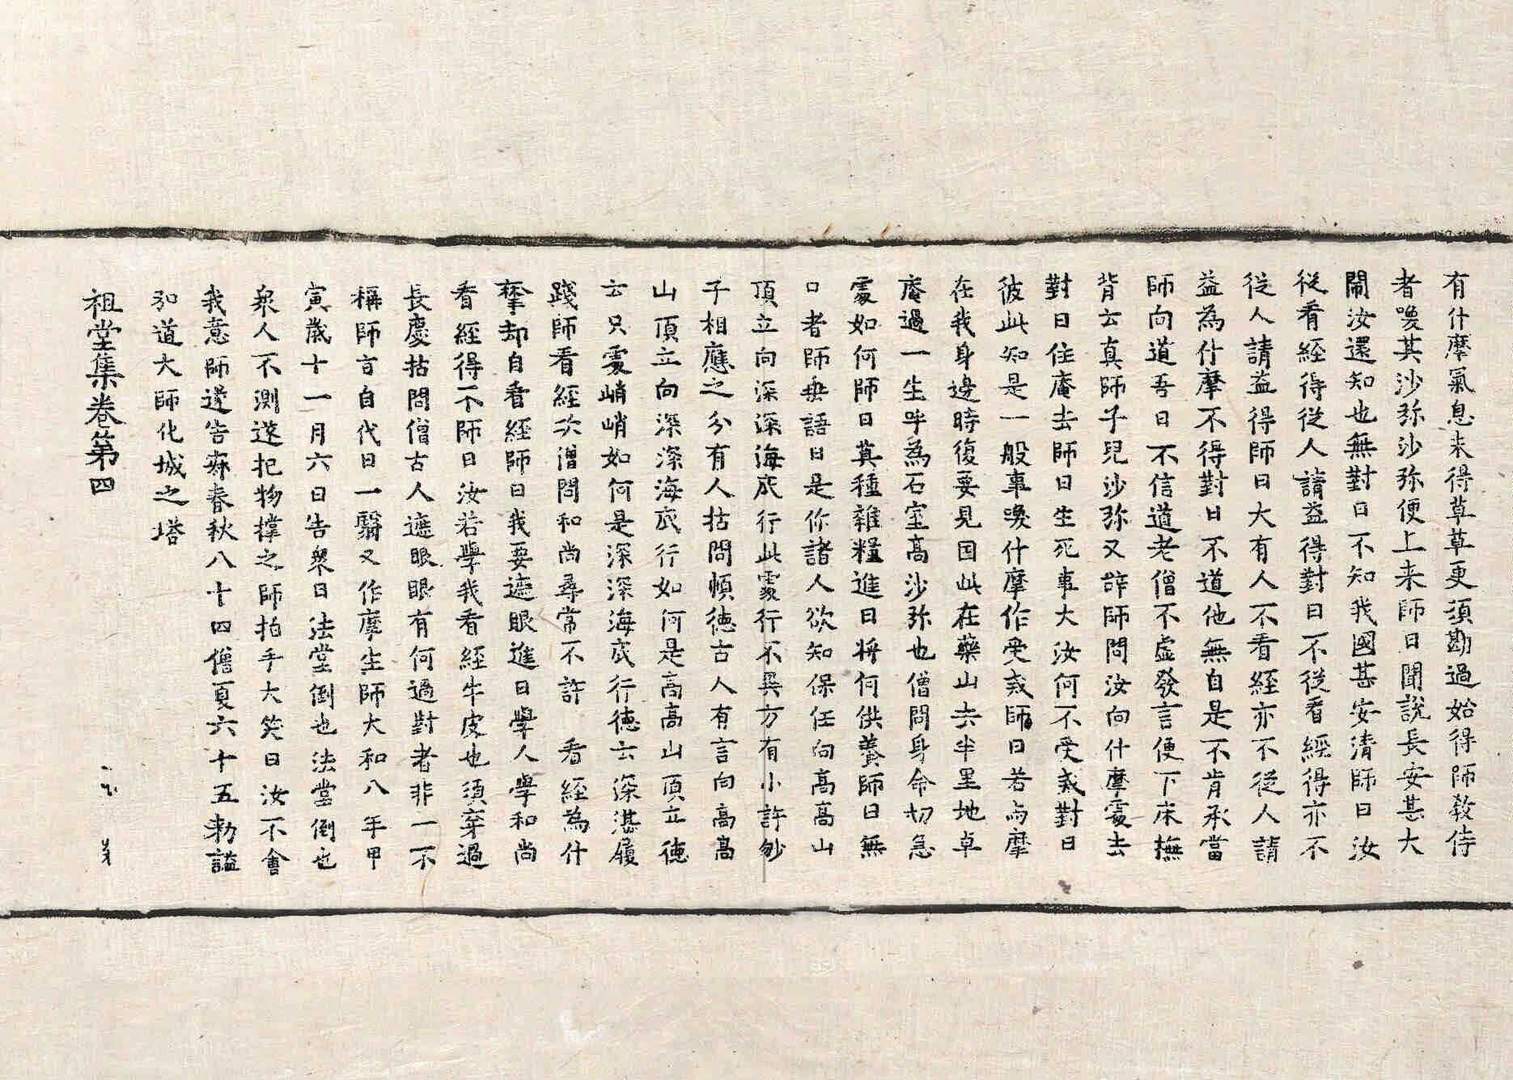 有什摩氣息来得草草更須勘過始得師教侍
者喚其沙弥沙弥便上来師曰聞說長安甚大
閙汝還知也無對曰不知我國甚安清師曰汝
從看經得從人請益得對曰不從看經得亦不
從人請益得師曰大有人不看經亦不從人請
益為什摩不得對曰不道他無自是不肯承當
師向道吾曰不信道老僧不虛發言便下床撫
背云真師子兒沙弥又辞師問汝向什摩處去
對曰住庵去師曰生死事大汝何不受戒對曰
彼此知是一般事喚什摩作受戒師曰若与摩
在我身邊時復要見因此在藥山去半里地卓
庵過一生呼為石室高沙弥也僧問身命切急
處如何師曰莫種雜糧進曰將何供養師曰無
口者師垂語曰是你諸人欲知保任向高高山
頂立向深深海底行此處行不異方有小許紗
子相應之分有人拈問順德古人有言向高高
山頂立向深深海底行如何是高高山頂立德
云只處峭峭如何是深深海底行德云深湛履
踐師看經次僧問和尚尋常不許 看經為什
摩却自看經師曰我要遮眼進曰學人學和尚
看經得不師曰汝若學我看經牛皮也須穿過
長慶拈問僧古人遮眼眼有何過對者非一不
稱師言自代曰一翳又作摩生師大和八年甲
寅歲十一月六日告衆曰法堂倒也法堂倒也
衆人不測遂把物撑之師拍手大笑曰汝不會
我意師遂告寂春秋八十四僧夏六十五勅謚
弘道大師化城之塔
祖堂集卷第四